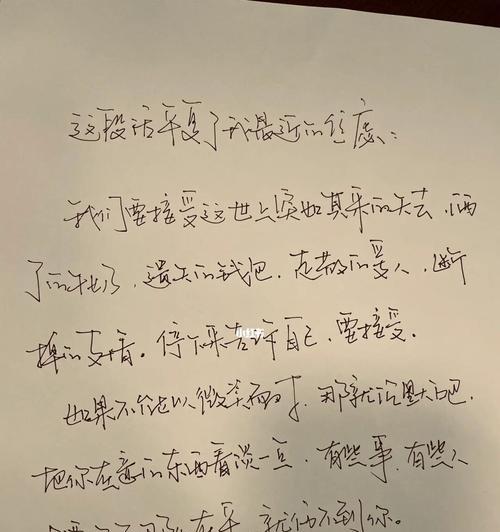 这段话平复了我最近的焦虑:
我们要接受这世上突如其来的失去,洒
了的牛奶,遗失的钱包,走散的爱人,断
掉的友情。停下来告诉自己,要接受。
小红书
如果不能以微笑面对,那就沉默吧,
把你在意的东西看淡一点,有些事,有些人
在乎,就伤不到你。